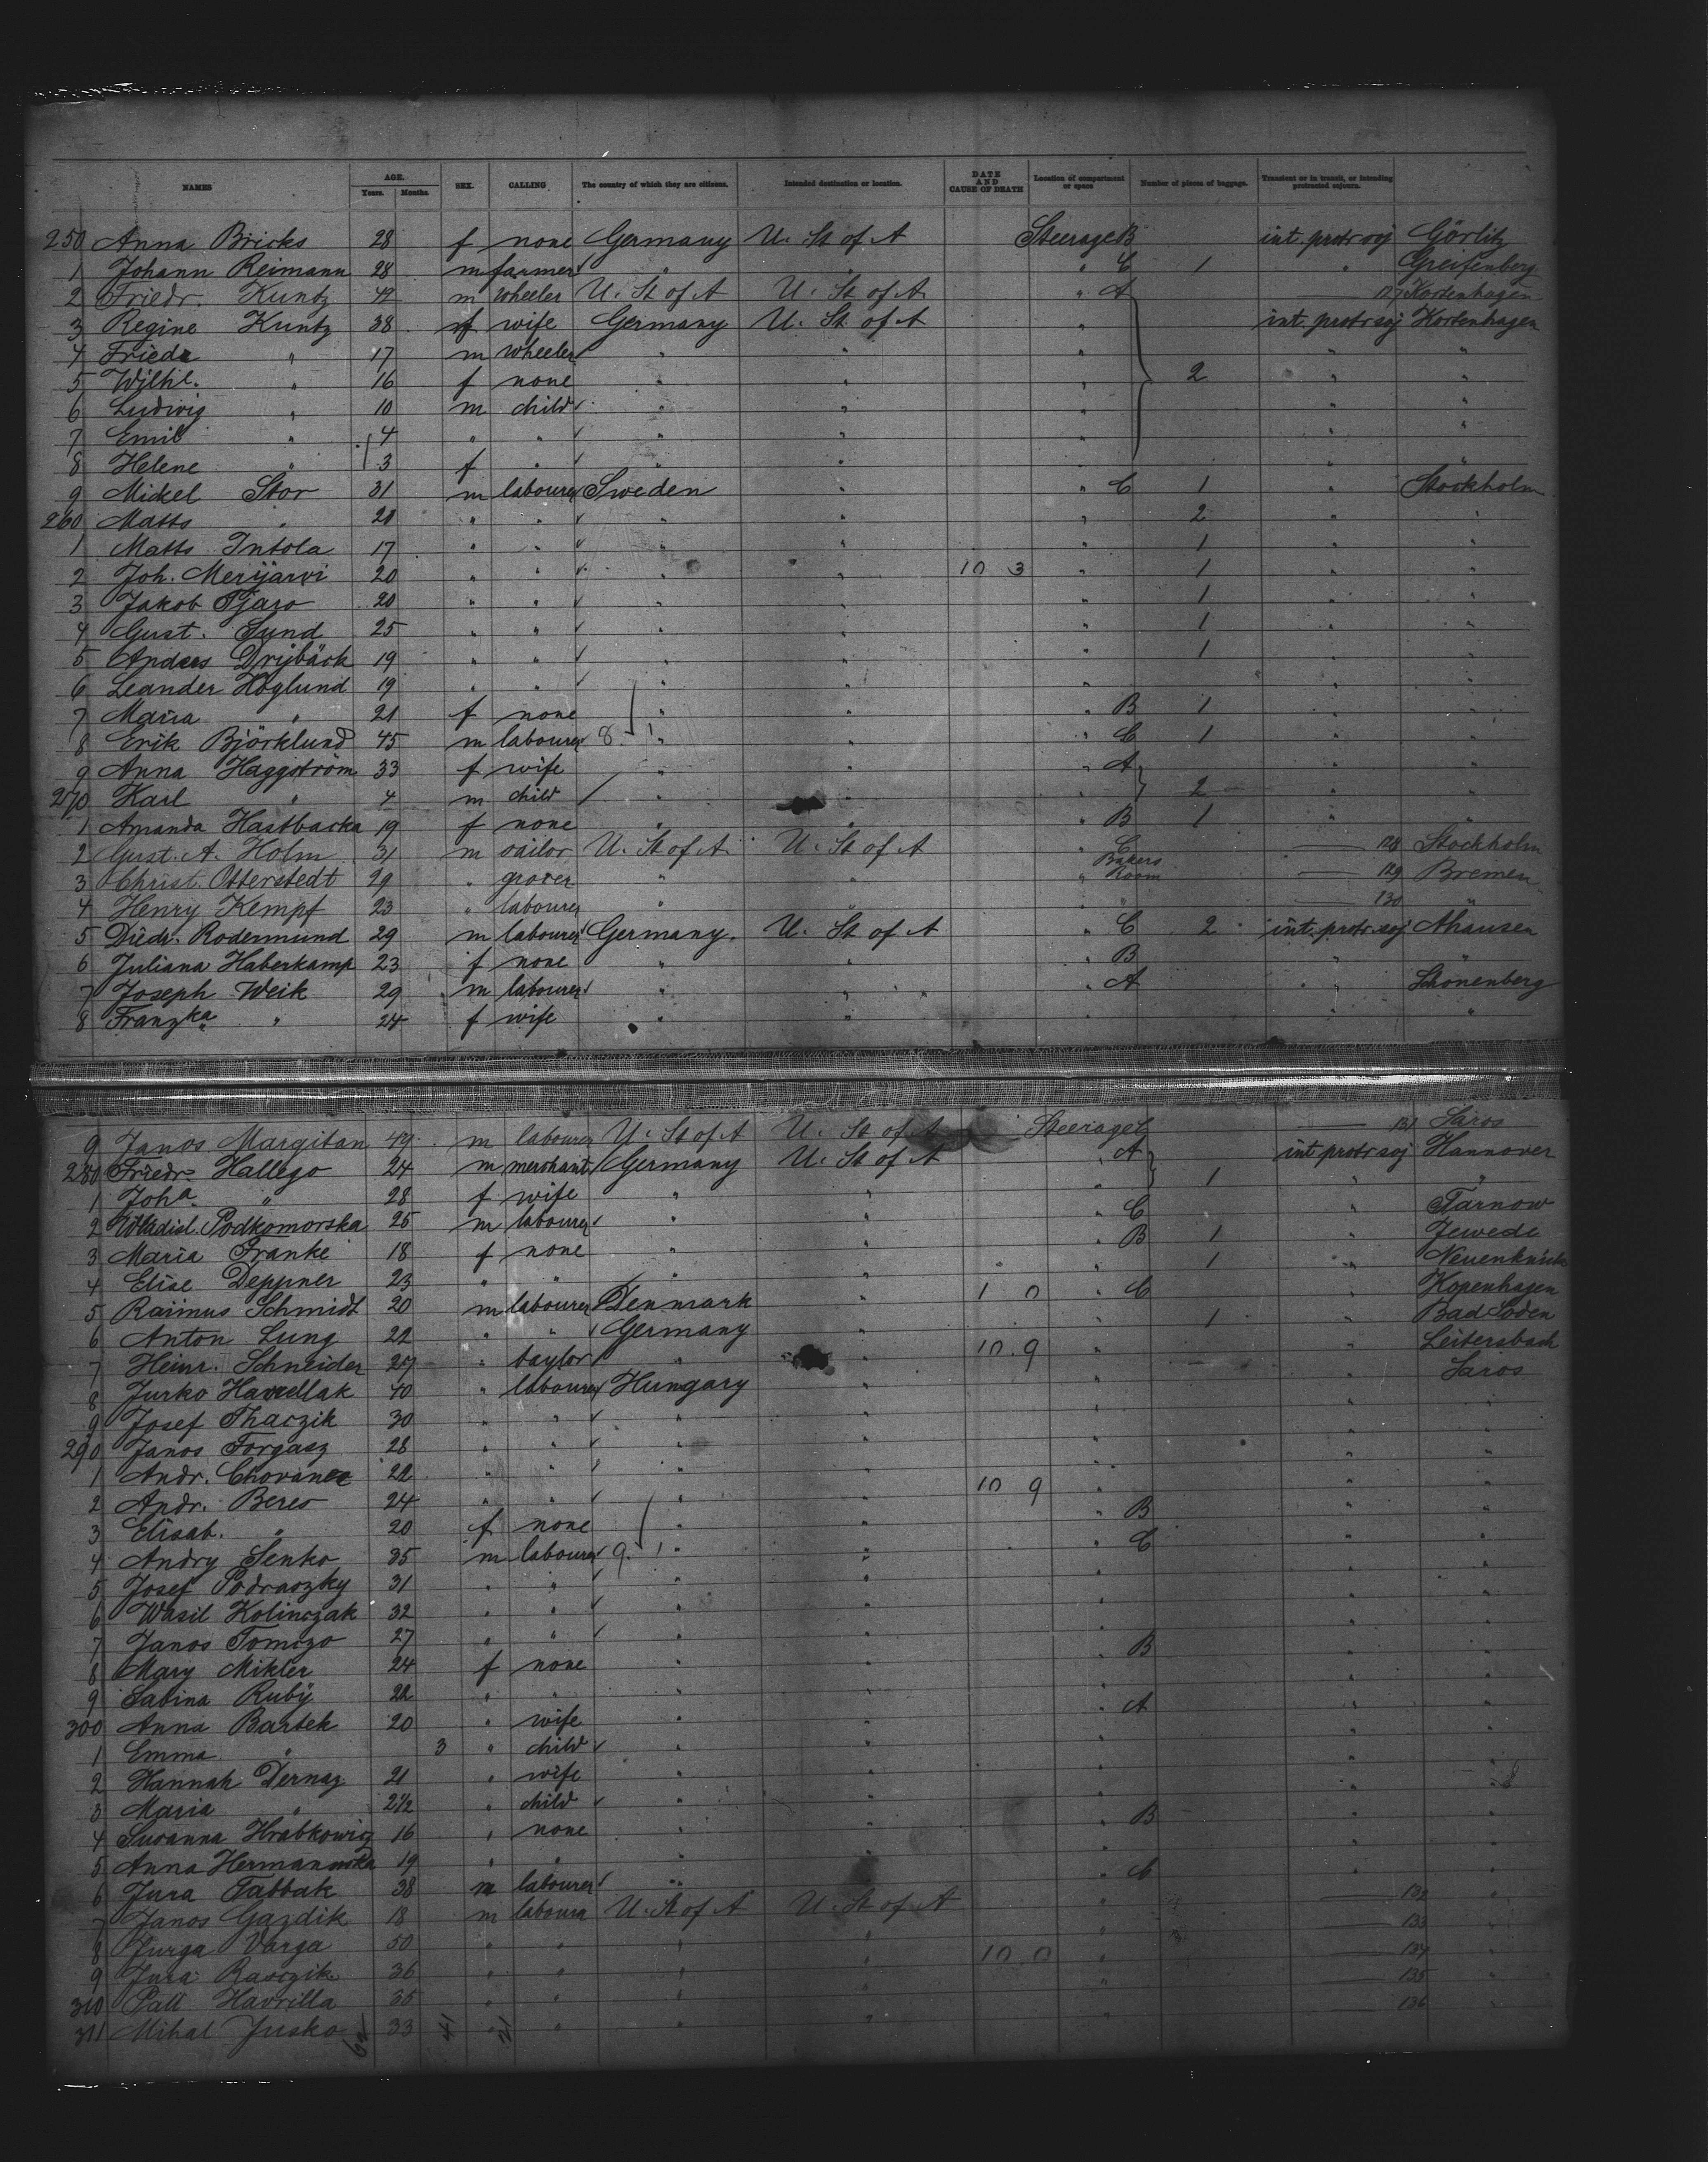 NAMES AGE. Years. Months. SEX. CALLING The country of which they are citizens. Intended destination or location. DATE AND CAUSE OF DEATH Location of compartment or space Number of pieces of baggage. Transient or in transit, or intending protracted sojourn.
250 Anna Bricks 28 f none Germany U. St of A Steerage B int. protr soj Görlitz
1 Johann Reimann 28 m farmer " " " C 1 " Greifenberg
2 Friedr. Kuntz 42 m wheeler U. St of A U. St of A " A 127 Kortenhagen
3 Regine Kuntz 38 f wife Germany U. St of A " int. protr soj Kortenhagen
4 Friedr " 17 m wheeler " " " " "
5 Wilh. " 16 f none " " " 2 " "
6 Ludwig " 10 m child " " " " "
7 Emil " 4 " " " " " "
8 Helene " 3 f " " " " "
9 Mickel Stor 31 m labourer Sweden " " C 1 " Stockholm
260 Matts " 20 " " " " " 2 " "
1 Matts Intola 17 " " " " " 1 " "
2 Joh. Merijarvi 20 " " " " 10 3 " 1 " "
3 Jakob Pjaro 20 " " " " " 1 " "
4 Gust. Sund 25 " " " " " 1 " "
5 Anders Drijbäck 19 " " " " " 1 " "
6 Leander Höglund 19 " " " " " " "
7 Maria " 21 f none " " " B 1 " "
8 Erik Björklund 45 m labourer 8 1 " " " C 1 " "
9 Anna Haggström 33 f wife " " " A " "
270 Karl " 4 m child " " " 2 " "
1 Amanda Hastbacka 19 f none " " " B 1 " "
2 Gust. A. Holm 31 m sailor U. St of A U. St of A " C 128 Stockholm
3 Christ. Otterstedt 29 " grocer " " " Bakers Room 129 Bremen
4 Henry Kempf 23 " labourer " " " " 130 "
5 Diedr. Rodenmund 29 m labourer Germany. U. St of A " C 2 int. protr. soj Ahausen
6 Juliana Haberkamp 23 f none " " " B " "
7 Joseph Weik 29 m labourer " " " A " Schönenberg
8 Franzka " 24 f wife " " " " "
9 Janos Margitan 47 m labourer U. St of A U. St of A Steerage C 131 Saros
280 Friedr. Hallego 24 m merchant Germany U. St of A " A int protr soj Hannover
1 Joha " 28 f wife " " " 1 " "
2 Wladisl. Podkomorska 25 m labourer " " " C " Tarnow
3 Maria Franke 18 f none " " " B 1 " Jewede
4 Elise Deppner 23 " " " " " 1 "
5 Rasmus Schmidt 20 m labourer Denmark " 1 0 " C " Kopenhagen
6 Anton Lung 22 " " Germany " " 1 " Bad Soden
7 Heinr. Schneider 27 " taylor " " 10 9 " " Leitersbach
8 Jurko Havrellak 40 " labourer Hungary " " " Saros
9 Josef Thaczik 30 " " " " " " "
290 Janos Forgasz 28 " " " " " " "
1 Andr. Chovanec 22 " " " " " " "
2 Andr. Beres 24 " " " " 10 9 " " "
3 Elisab. " 20 f none " " " B " "
4 Andry Senko 35 m labourer 9. 1 " " " C " "
5 Josef Podraszky 31 " " " " " " "
6 Wasil Kolinczak 32 " " " " " " "
7 Janos Tomczo 27 " " " " " " "
8 Mary Mikler 24 f none " " " B " "
9 Sabina Ruby 22 " " " " " " "
300 Anna Bartek 20 " wife " " " A " "
1 Emma " 3 " child " " " " "
2 Hannah Dernaz 21 " wife " " " " "
3 Maria " 2½ " child " " " " "
4 Susanna Hrabkowig 16 " none " " " B " "
5 Anna Hermanowska 19 " " " " " " "
6 Jura Tabbak 38 m labourer " " " C " "
7 Janos Gazdik 18 m laboura U. St of A U. St of A " 132 "
8 Jurga Varga 50 " " " " " 133 "
9 Jura Rasczik 36 " " " " 10 0 " 134 "
310 Pall Havrilla 35 " " " " " 135 "
311 Mihal Jusko 33 " " " " " 136 "
41 21